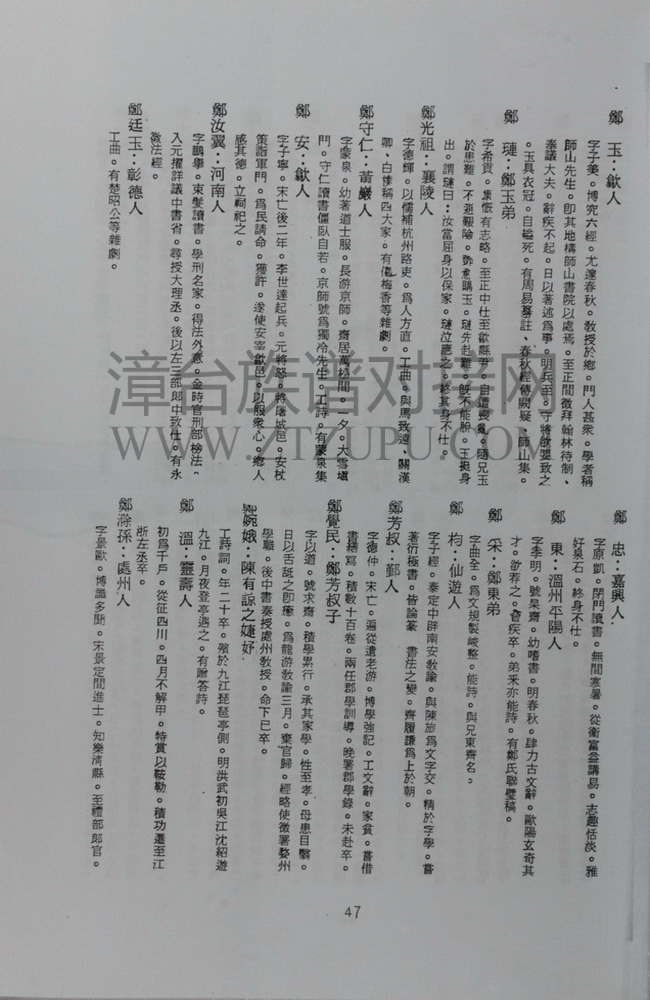 鄭　玉：歙人
字子美。博究六經。尤邃春秋。教授於鄉。門人甚衆。學者稱
師山先生。卽其地構師山書院以處焉。至正間徵拜翰林待制、
奉議大夫。辭疾不起。日以著述爲事。明兵至。守將欲要致之
。玉具衣冠。自縊死。有周易纂註、春秋經傳闕疑、師山集。
鄭　璉：鄭玉弟
字希貢。
鄭光祖：襄陵人
字德輝。以儒補杭州路吏。爲人方直。工曲。與馬致遠、關漢
卿、白樸稱四大家。有㑳梅香等雜劇。
鄭守仁：黃巖人
字蒙泉。幼著道士服。長游京師。齋居萬松間。一夕。大雪塡
門。守仁讀書僵臥自若。京師號爲獨冷先生。工詩。有蒙泉集
鄭　安：歙人
字子寧。宋亡後二年。李世達起兵。元將怒。將屠城邑。安杖
策詣軍門。爲民請命。獲許。遂使安宰歙邑。以服衆心。鄉人
感其德。立祠祀之。
鄭汝翼：河南人
字鵬擧。束髮讀書。學刑名家。得法外意。金時官刑部檢法。
入元擢詳議中書省。尋授大理丞。後以左三部郎中致仕。有永
徽法經。
鄭廷玉：彰德人
工曲。有楚昭公等雜劇。
鄭　忠：嘉興人
字原凱。閉門讀書。無間寒暑。從衞富益講易。志趣恬淡。雅
好泉石。終身不仕。
鄭　東：溫州平陽人
字季明。號杲齋。幼嗜書。明春秋。肆力古文辭。歐陽玄奇其
才。欲荐之。會疾卒。弟采亦能詩。有鄭氏聯璧稿。
鄭　采：鄭東弟
字曲全。爲文規製峻整。能詩。與兄東齊名。
鄭　构：仙遊人
字子經。泰定中辟南安教諭。與陳旅爲文字交。精於字學。嘗
著衍極書。皆論篆　書法之變。齊履謙爲上於朝。
鄭芳叔：鄞人
字德仲。宋亡。遍從遺老游。博學強記。工文辭。家貧。嘗借
書繕寫。積數十百卷。兩任郡學訓導。晚署郡學錄。未赴卒。
鄭覺民：鄭芳叔子
字以道。號求齋。積學累行。承其家學。性至孝。母患目翳。
日以舌舐之卽瘥。爲龍游教諭三月。棄官歸。經略使徵署婺州
學職。後中書奏授處州教授。命下已卒。
鄭婉娥：陳有諒之婕妤
工詩詞。年二十卒。殯於九江琵琶亭側。明洪武初吳江沈紹遊
九江。月夜登亭遇之。有贈答詩。
鄭　溫：靈壽人
初爲千戶。從征四川。四月不解甲。特賞以鞍勒。積功遷至江
所左丞卒。
鄭滁孫：處州人
字景歐。博識多聞。宋景定間進士。知樂淸縣。至禮部郎官。
47
漳台族谱对接网
WWW.ZTZUPU.COM